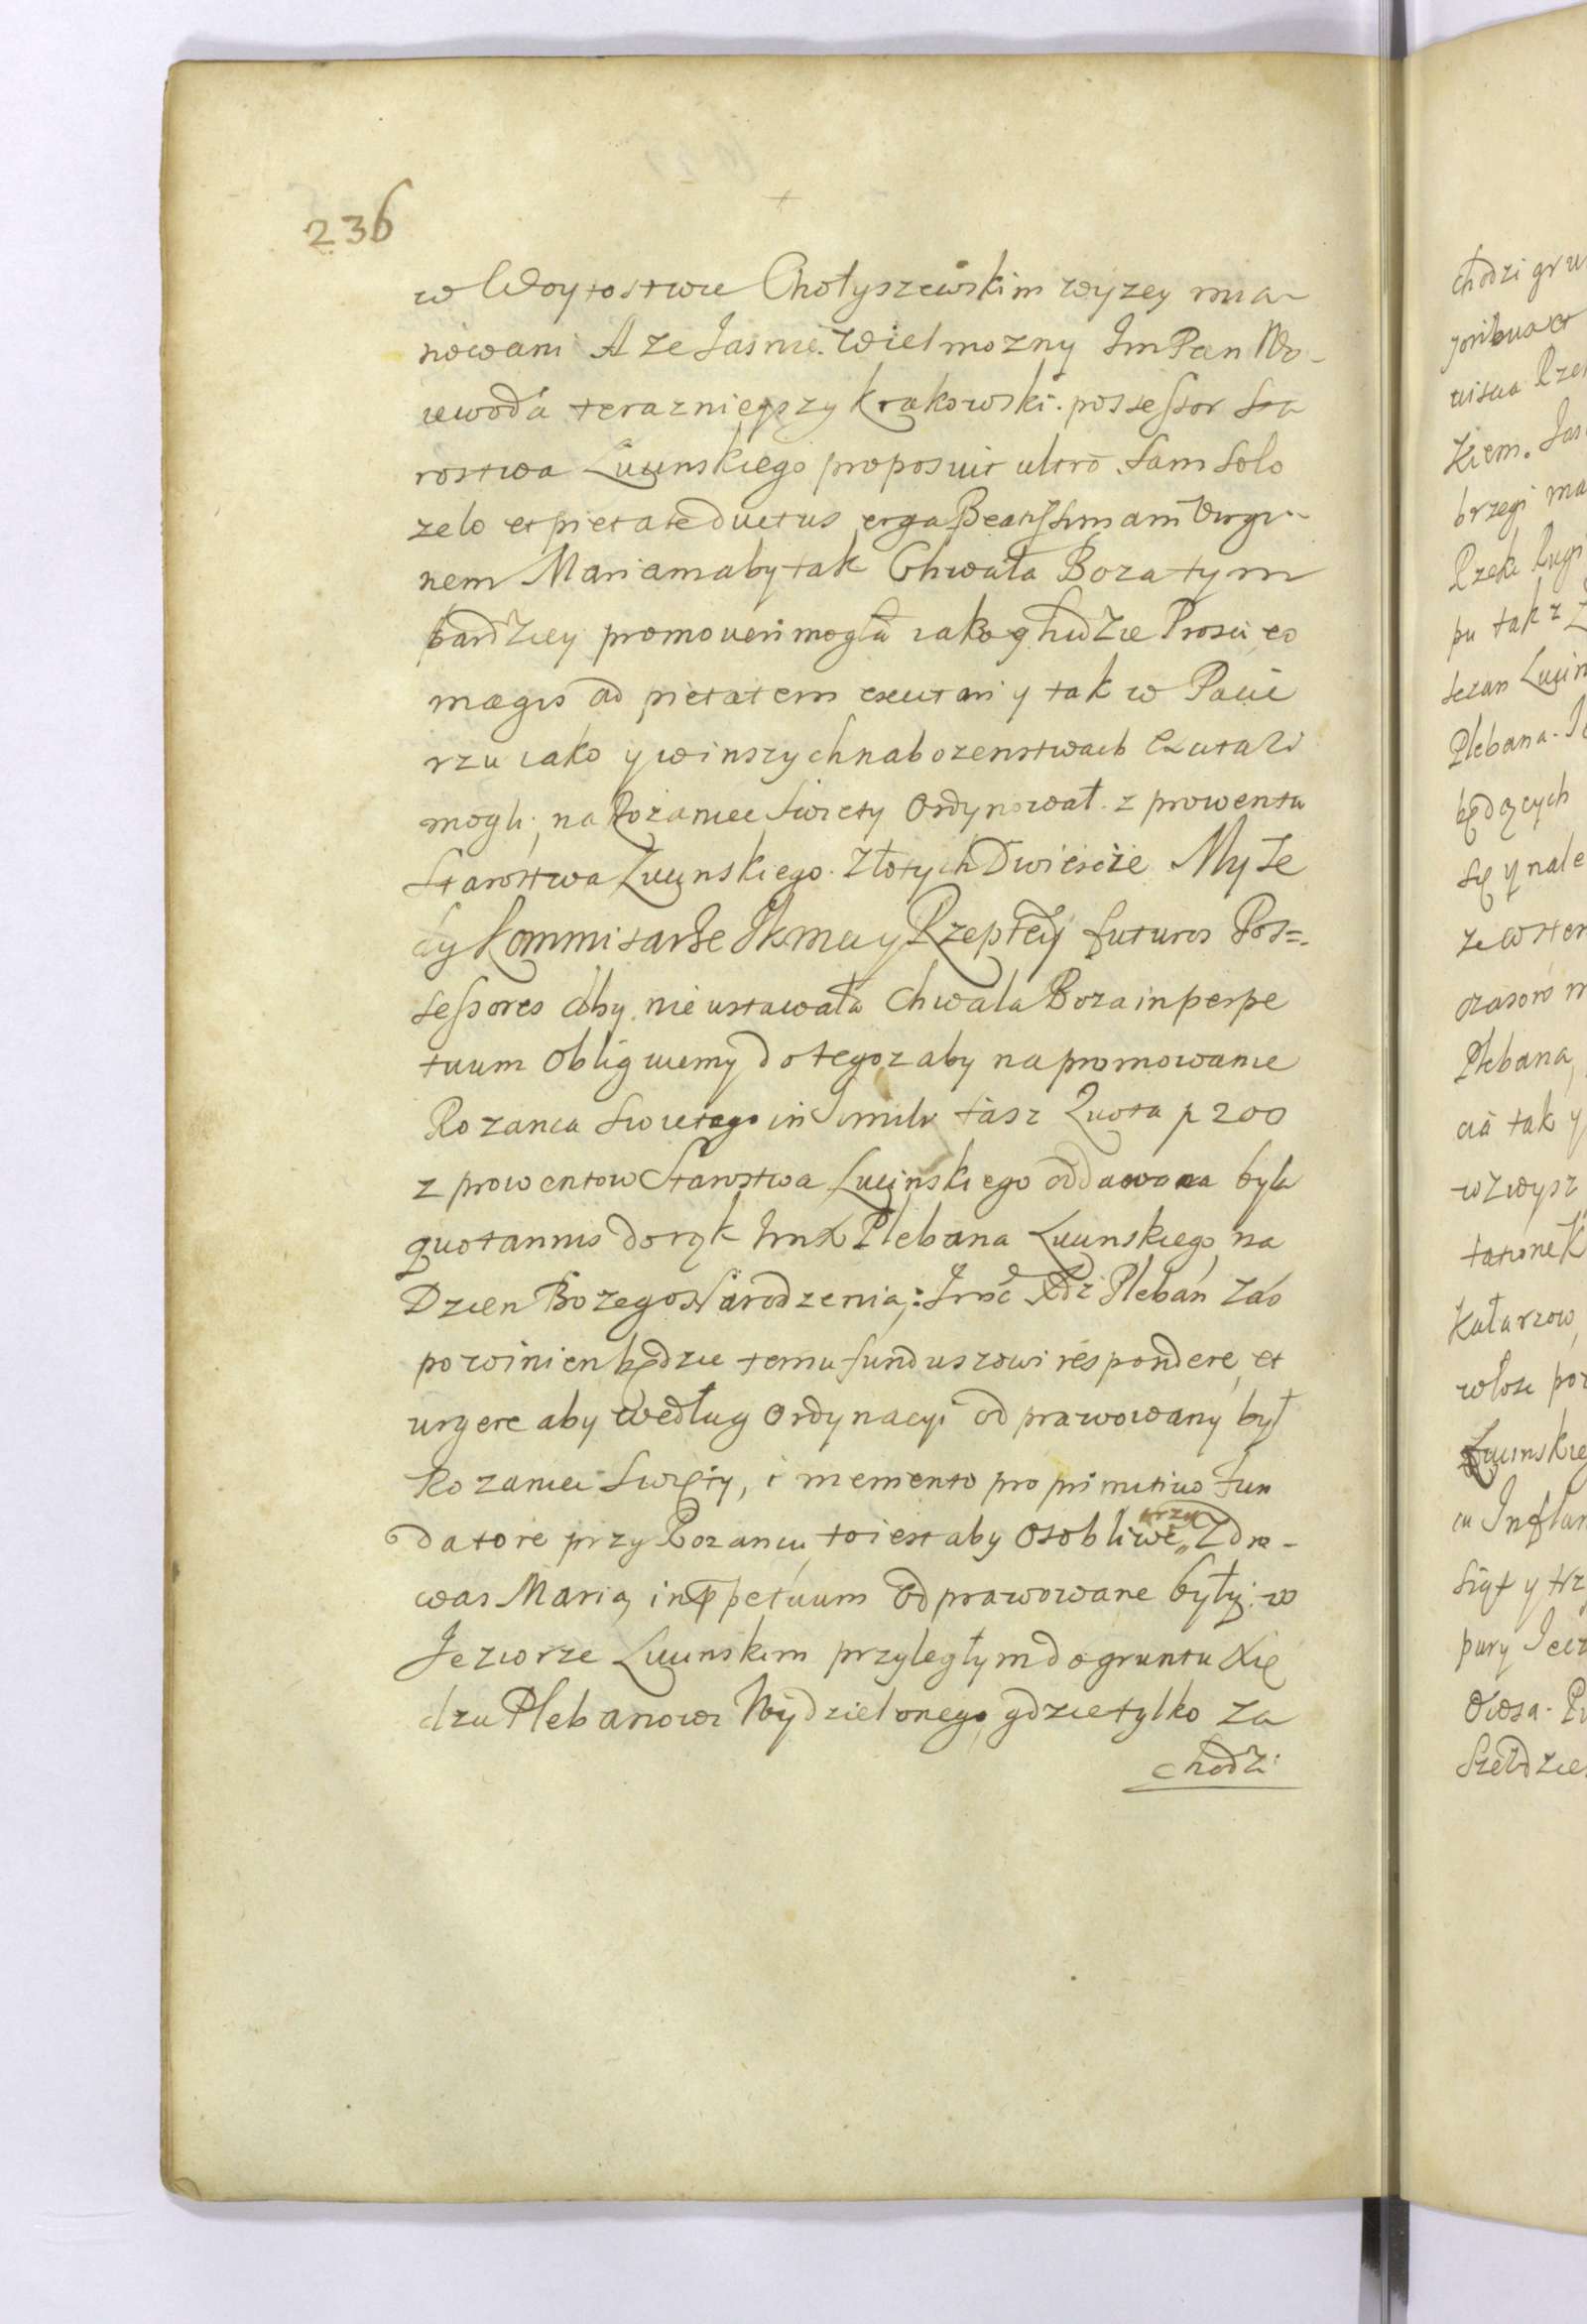 236
w Woytostwie Chołyszewskim wyzey mia-
nowani A ze Jasnie Wielmozny ImPan Wo-
iewoda terazniejszy krakowski possessor Sta
rostwa Lucinskiego proposuit ultro sam solo
zelo et pietate ductus erga Beatissimam Virgi-
nem Mariam aby tak Chwała Boza tym
bardziey promoveri mogła iako y ludzie Prosci eo
magis ad pietatem excitari y tak w Pacie
rzu iako y w inszych nabozenstwach
mogli, na Rożaniec Swiety Ordynował z prowentu
Starostwa Lucinskiego Złotych Dwieście My Te
dy Kommisarze Jkmci y Rzepltey futuros Pos=
sessores aby nie ustawała Chwała Boza in perpe
tuum Obliguiemy do tego z aby na promowanie
Rozanca Swietego in simili taz Quota p 200
z prowentow Starostwa Lucinskiego oddawana była
quotannis do rąk ImX Plebana Lucinskiego na
Dzien Bozego Narodzenia; Imć Xdz Pleban zas
powinien będzie temu funduszowi respondere, et
urgere aby według Ordynacyi odprawowany był
Rozaniec Swięty, i memento pro primitivo Fun
datore przy Rozancu to iest aby Osobliwe trzy Zdro-
was Maria in perpetuum odprawowane były: w
Jeziorze Lucinskim przyległym do gruntu Xię
dzu Plebanowi Wydzielonego gdzie tylko za
chodzi
chodzi gru

Rze
kiem. Jas
brzegi ma
Rzeki
pu tak z
Lucin
Plebana. J
będących
się y nale
ze wster
czasow m
Plebana,
cia tak y
wzwysz

włose por
Lucinskie
cu Inflan
siąt y trz
pary
Owsa. P